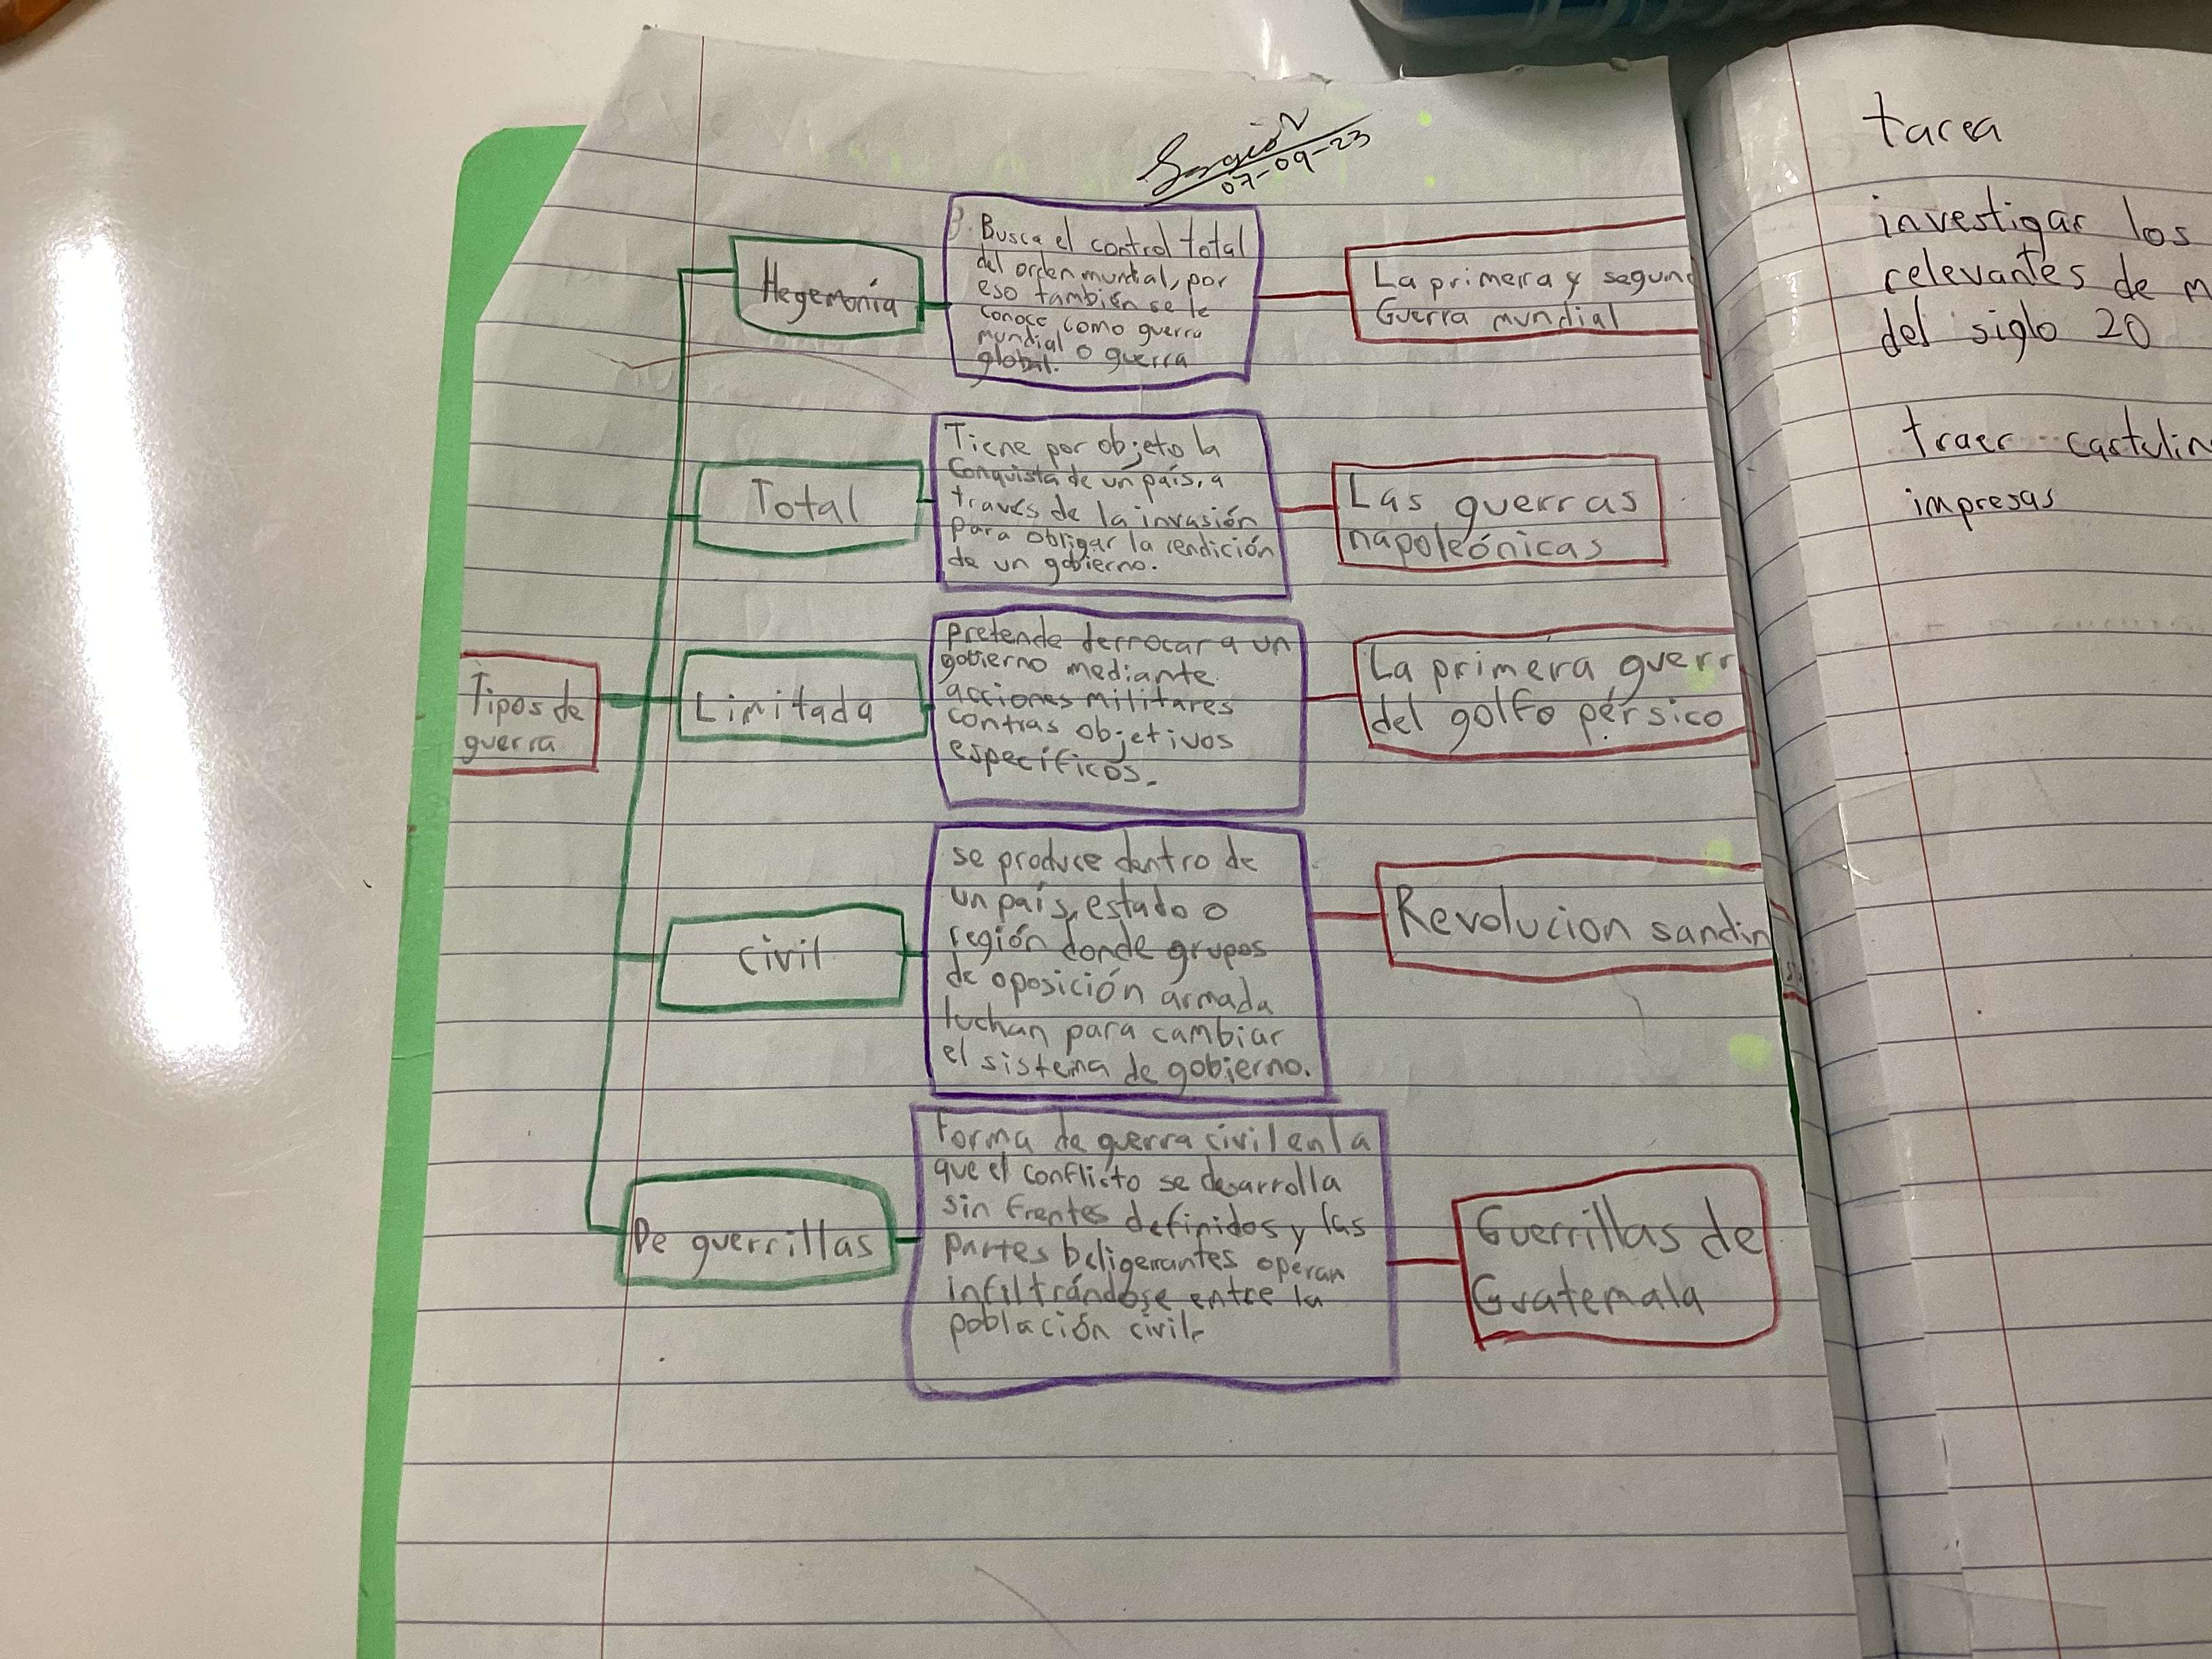 07-09-23
Tipos de
guerra
Hegemonía
Busca el control total
del orden mundial, por
eso también se le
conoce como guerra
mundial o guerra
global.
La primera y segun
Guerra mundial
Total
Tiene por objeto la
conquista de un país, a
través de la invasión
para obligar la rendición
de un gobierno.
Las guerras
napoleónicas
Limitada
pretende derrocar a un
gobierno mediante
acciones militares
contras objetivos
específicos.
La primera guerr
del golfo pérsico
civil
se produce dentro de
un país, estado o
región donde grupos
de oposición armada
luchan para cambiar
el sistema de gobierno.
Revolucion sandin
De guerrillas
Forma de guerra civil en la
que el conflicto se desarrolla
sin frentes definidos y las
partes beligerantes operan
infiltrándose entre la
población civil.
Guerrillas de
Guatemala
tarea
investigar los
relevantes de m
del siglo 20
traer cartulin
impresas